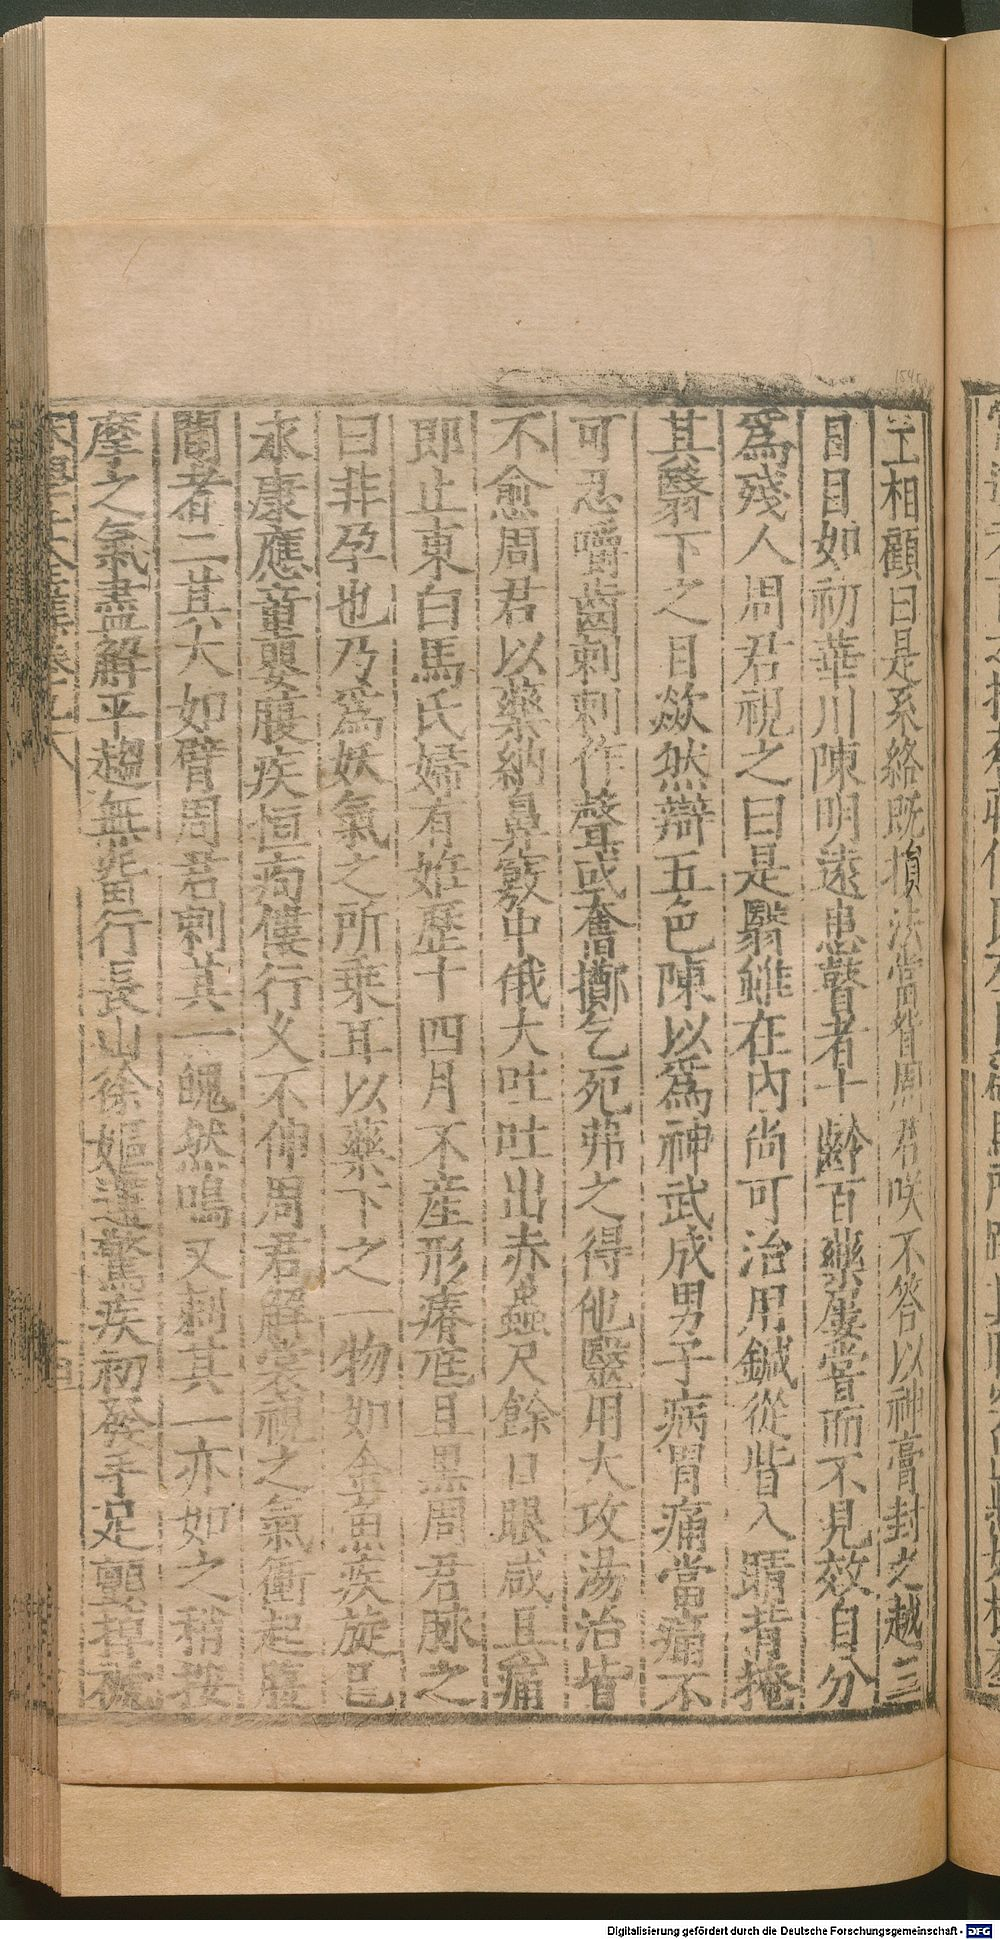 工相顧曰是系絡既損法當瞽周君咲不答以神膏封之越三
目目如初華川陳明遠患瞽者十齡百藥屢嘗而不見效自分
爲殘人周君視之曰是翳雖在內尚可治用鍼從眥入睛背掩
其翳下之目欻然辯五色陳以爲神武成男子病胃痛當痛不
可忍嚼齒刺刺作聲或奮擲乞死弗之得他醫用大攻湯治皆
不愈周君以藥納鼻竅中俄大吐吐出赤蟲尺餘口眼咸且痛
即止東白馬氏婦有姙歷十四月不產形瘠尫且黑周君脉之
曰非孕也乃爲妖氣之所乘耳以藥下之一物如金魚疾旋已
永康應童嬰腹疾恒痀僂行久不伸周君解裳視之氣衝起腹
間者二其大如臂周君刺其一魄然鳴又刺其一亦如之稍按
摩之氣盡解平趨無留行長山徐嫗遘驚疾初發手足顫掉
卷
Digitalisierung gefördert durch die Deutsche Forschungsgemeinschaft - DFG